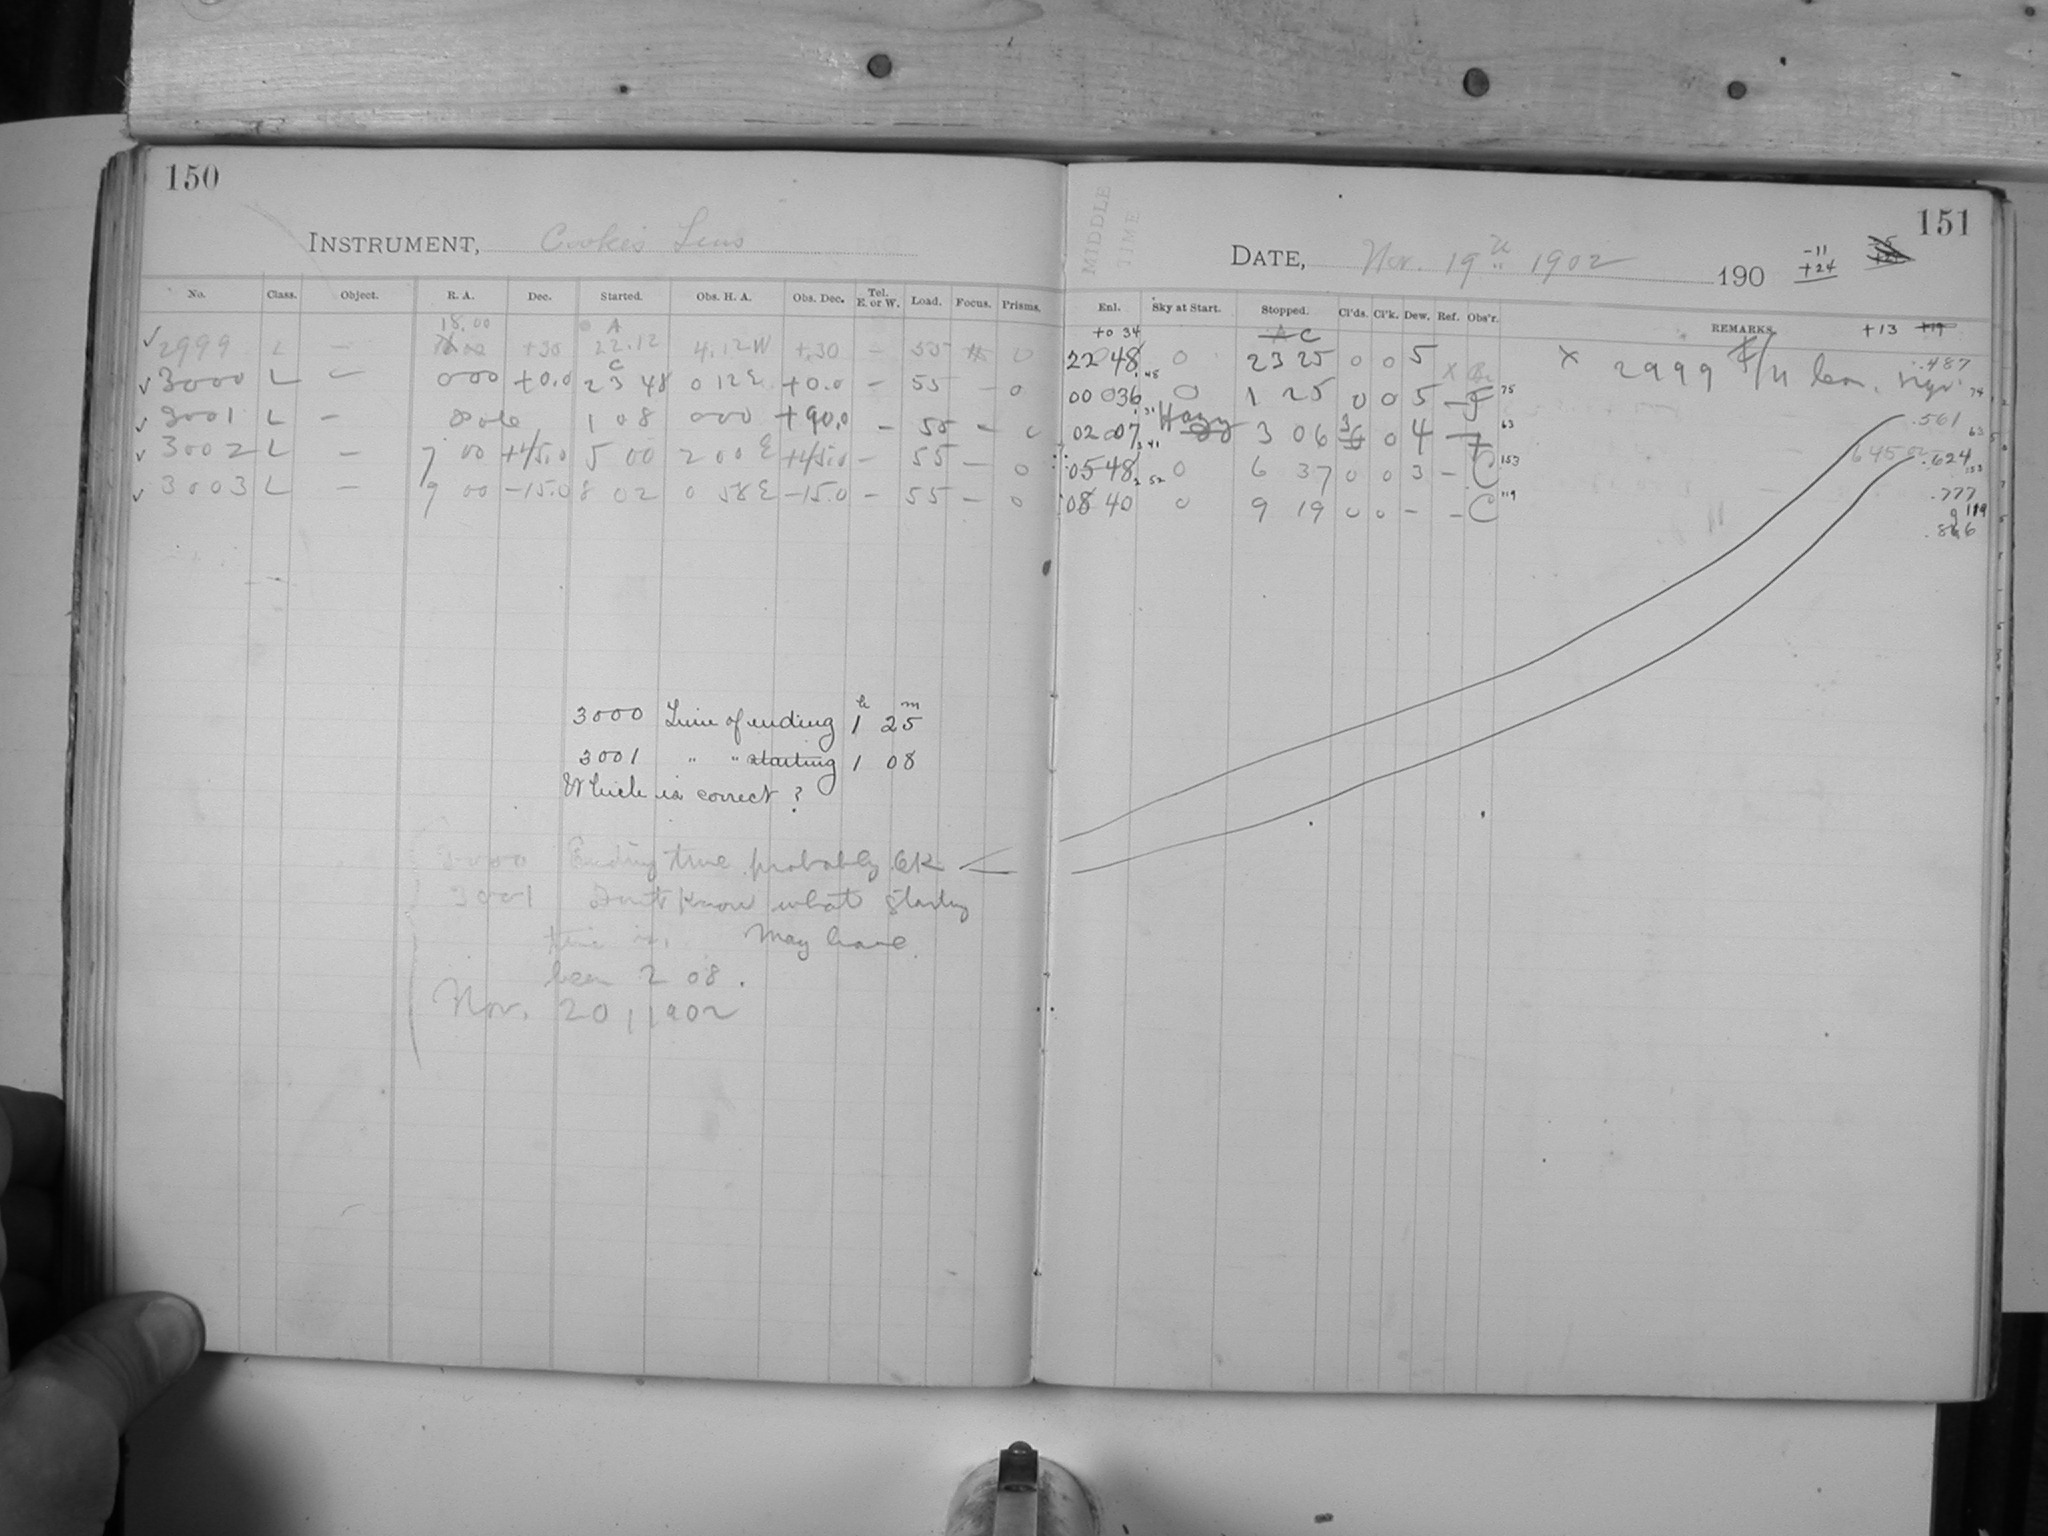 150
INSTRUMENT, Cooke's Lens
No. Class. Object. R. A. Dec. Started. Obs. H. A. Obs. Dec. Tel. E. or W. Load. Focus. Prisms.
18.00 A
✓ 2999 L — +30 22.12 4.12W +.30 — 55 0
C
✓ 3000 L — 0 00 +0.0 23 48 0 12 E +0.0 — 55 — 0
✓ 3001 L — Pole 1 08 0 00 +90.0 — 55 — 0
✓ 3002 L — 7 00 +45.0 5 00 2 00 E +45.0 — 55 — 0
✓ 3003 L — 9 00 -15.0 8 02 0 58 E -15.0 — 55 — 0
3000 Time of ending 1 h 25 m
3001 " " starting 1 08
Which is correct?
3000 Ending time probably OK
3001 Don't know what starting
time is. May have
been 2 08.
Nov. 20, 1902
151
MIDDLE
TIME
DATE, Nov. 19th 1902 190
-11
+24
Enl. Sky at Start. Stopped. Cl'ds. Cl'k. Dew. Ref. Obs'r. REMARKS.
+0 34 A C +13 +19
22 48 0 23 25 0 0 5 X × 2999 .487
00 036 0 1 25 0 0 5 — 75 74
02 07 Hazy 3 06 0 4 — 63 .561 63
05 48 0 6 37 0 0 3 — C 153 .624 153
08 40 0 9 19 0 0 — — C 119 .777
119